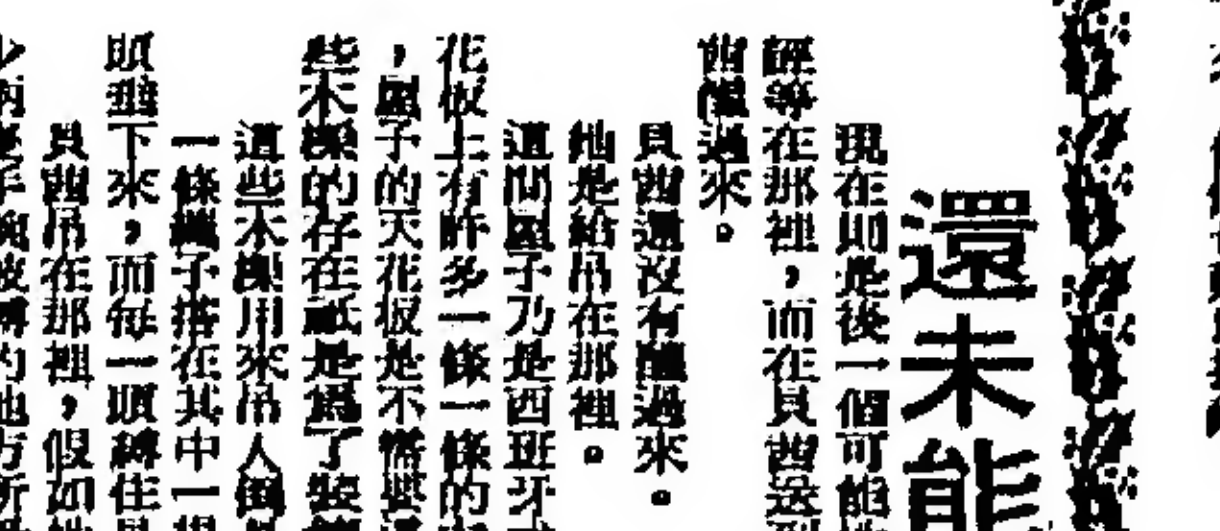 還未能
現在則是後一個可能
評等在那裡，而在貝茜送到
茜醒過來。
貝茜還沒有醒過來。
她是給吊在那裡。
這間屋子乃是西班牙式
花板上有許多一條一條的
，屋子的天花板是不需要這
些木樑的存在祇是為了裝飾
這些木樑用來吊人倒是
一條繩子搭在其中一根
頭垂下來，而每一頭縛住貝
貝茜吊在那裡，假如她
手腕被縛的地方所